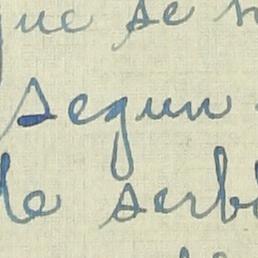 que se
segun
de serb